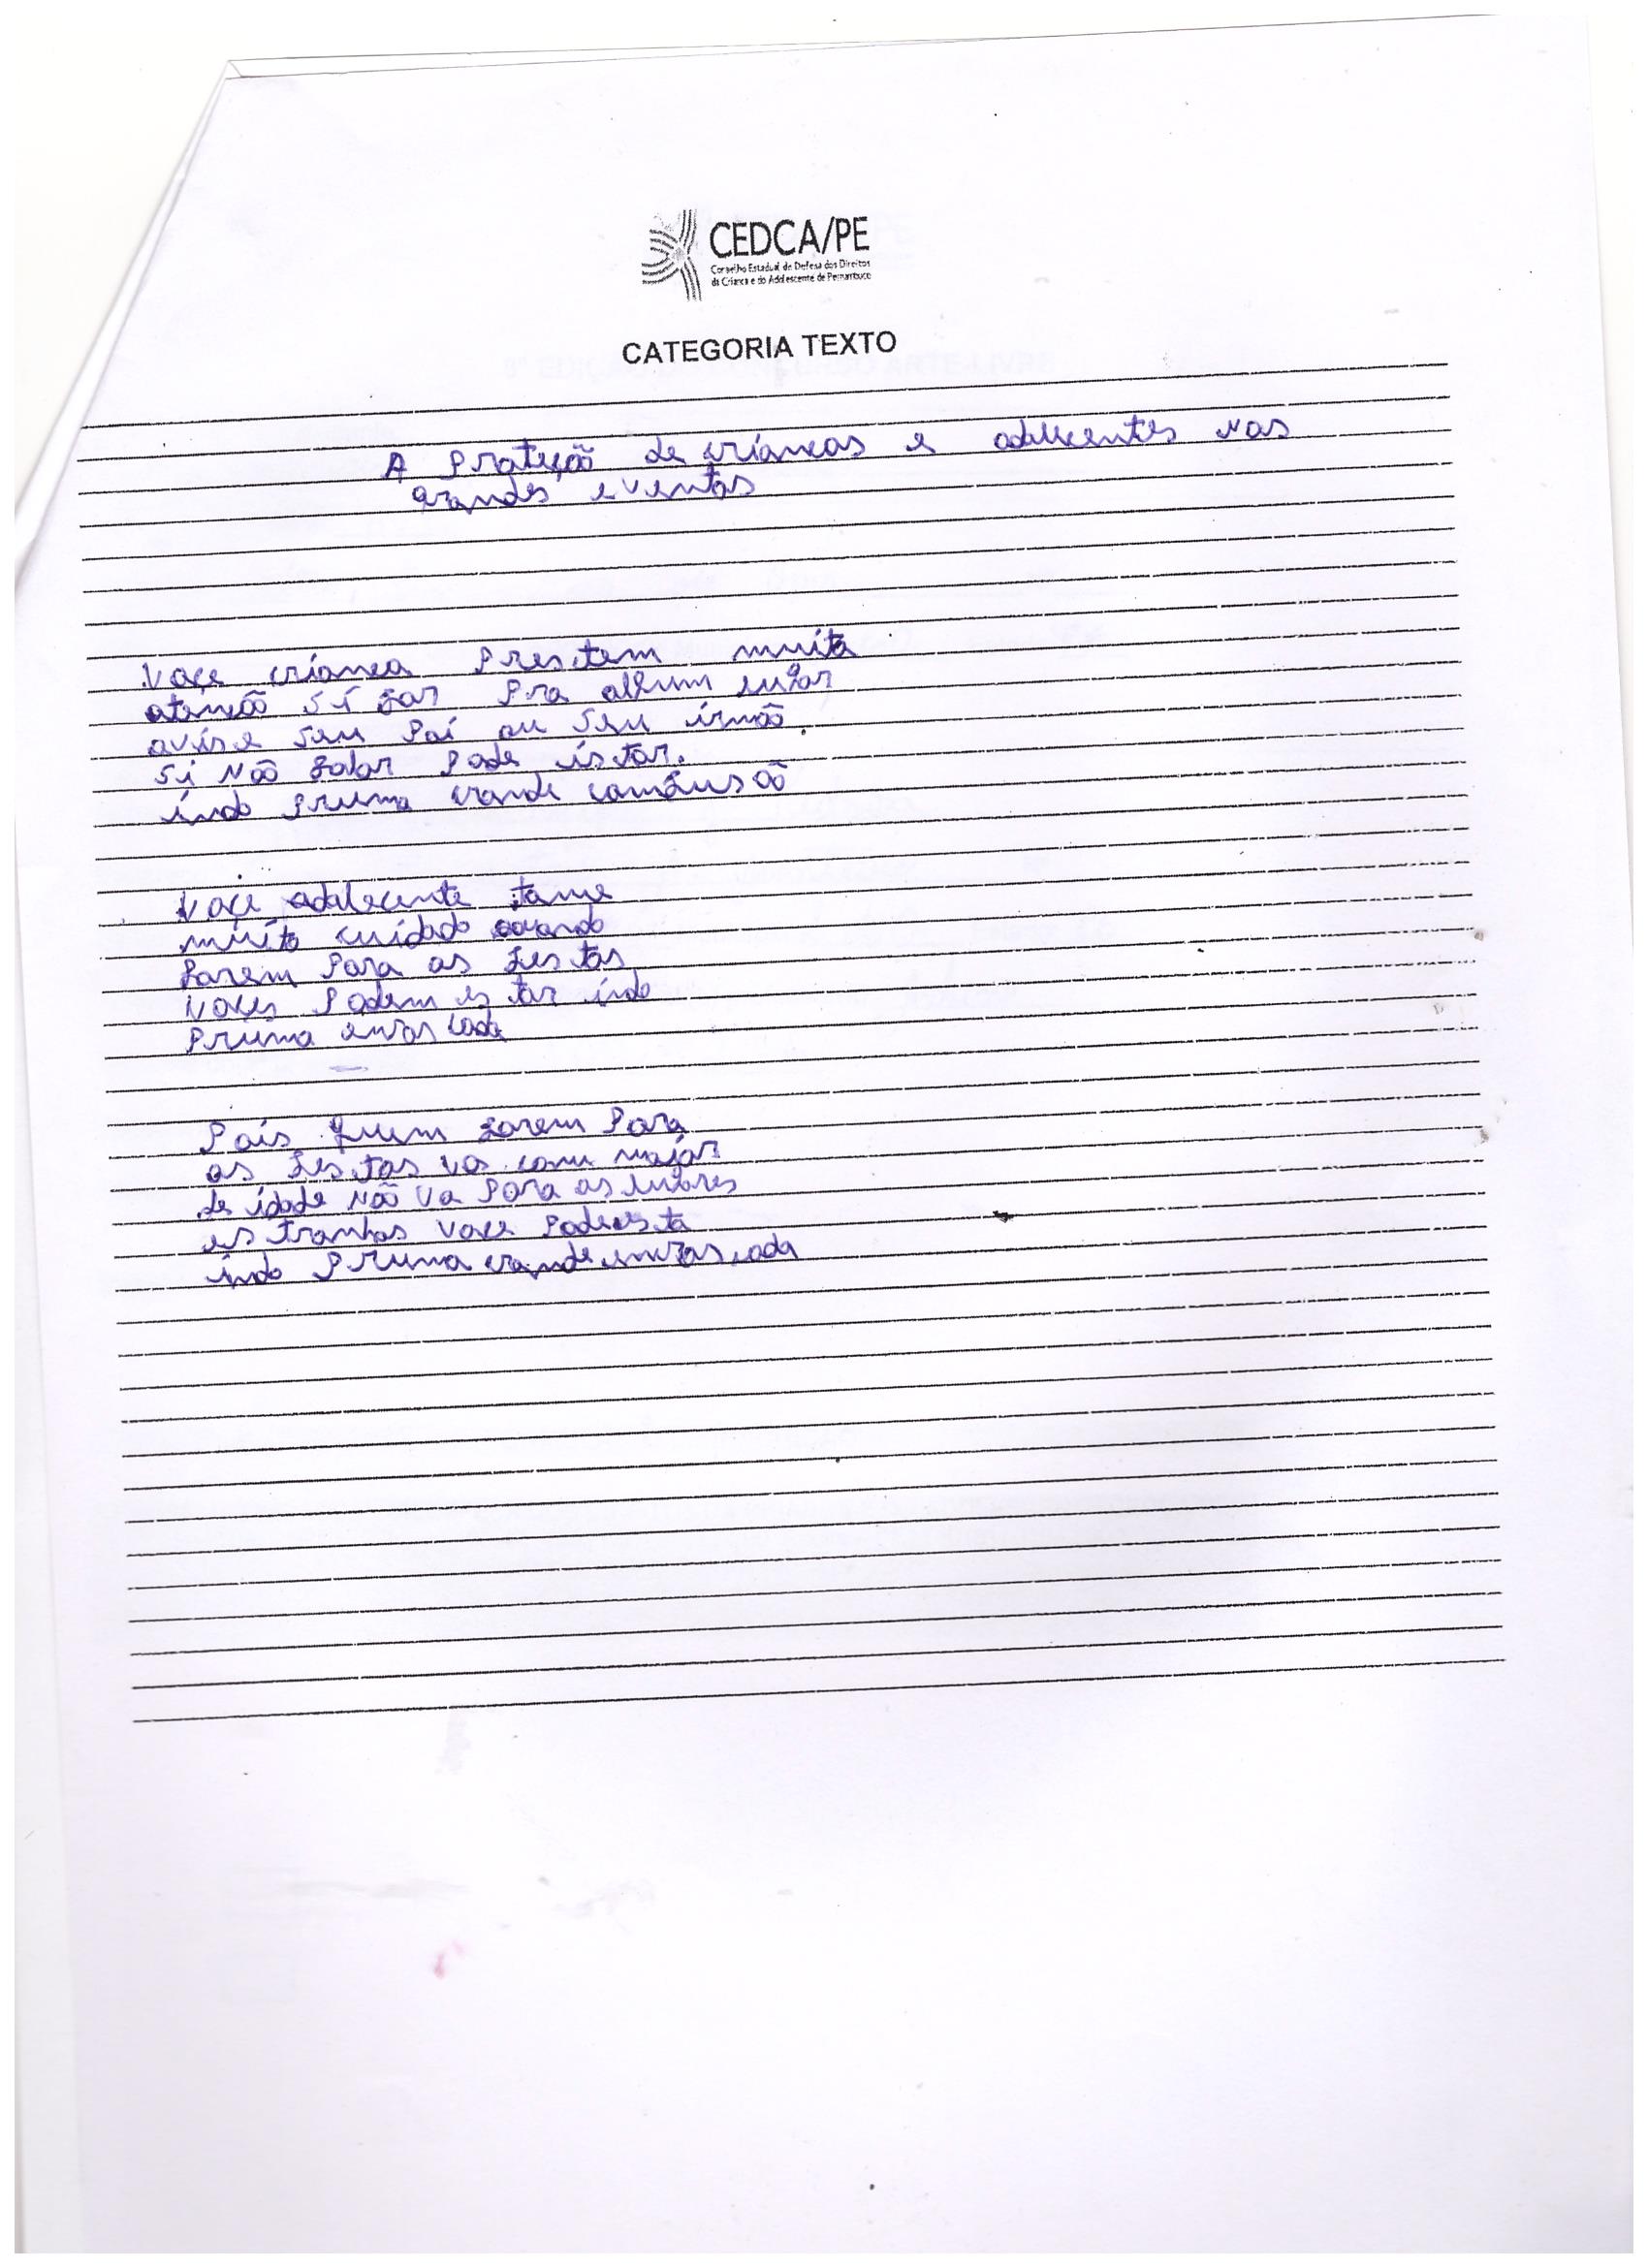 CEDCA/PE
Conselho Estadual de Defesa dos Direitos
da Criança e do Adolescente de Pernambuco
CATEGORIA TEXTO
A Proteção de crianças e adolecentes nas
grandes eventos
Voçe criança Prestem muita
atenção si for Pra algum lugar
avise seu Pai ou seu irmão
si não falar Pode istar.
indo Pruma grande comfusão
Voçe adolecente tome
muito cuidado quando
forem Para as festas
voçes Podem es tar indo
Pruma enras cada
Pais forem Para
as festas va com major
de idade não va Para as lugares
es tranhos voçe Pode esta
indo Pruma grande enrascada